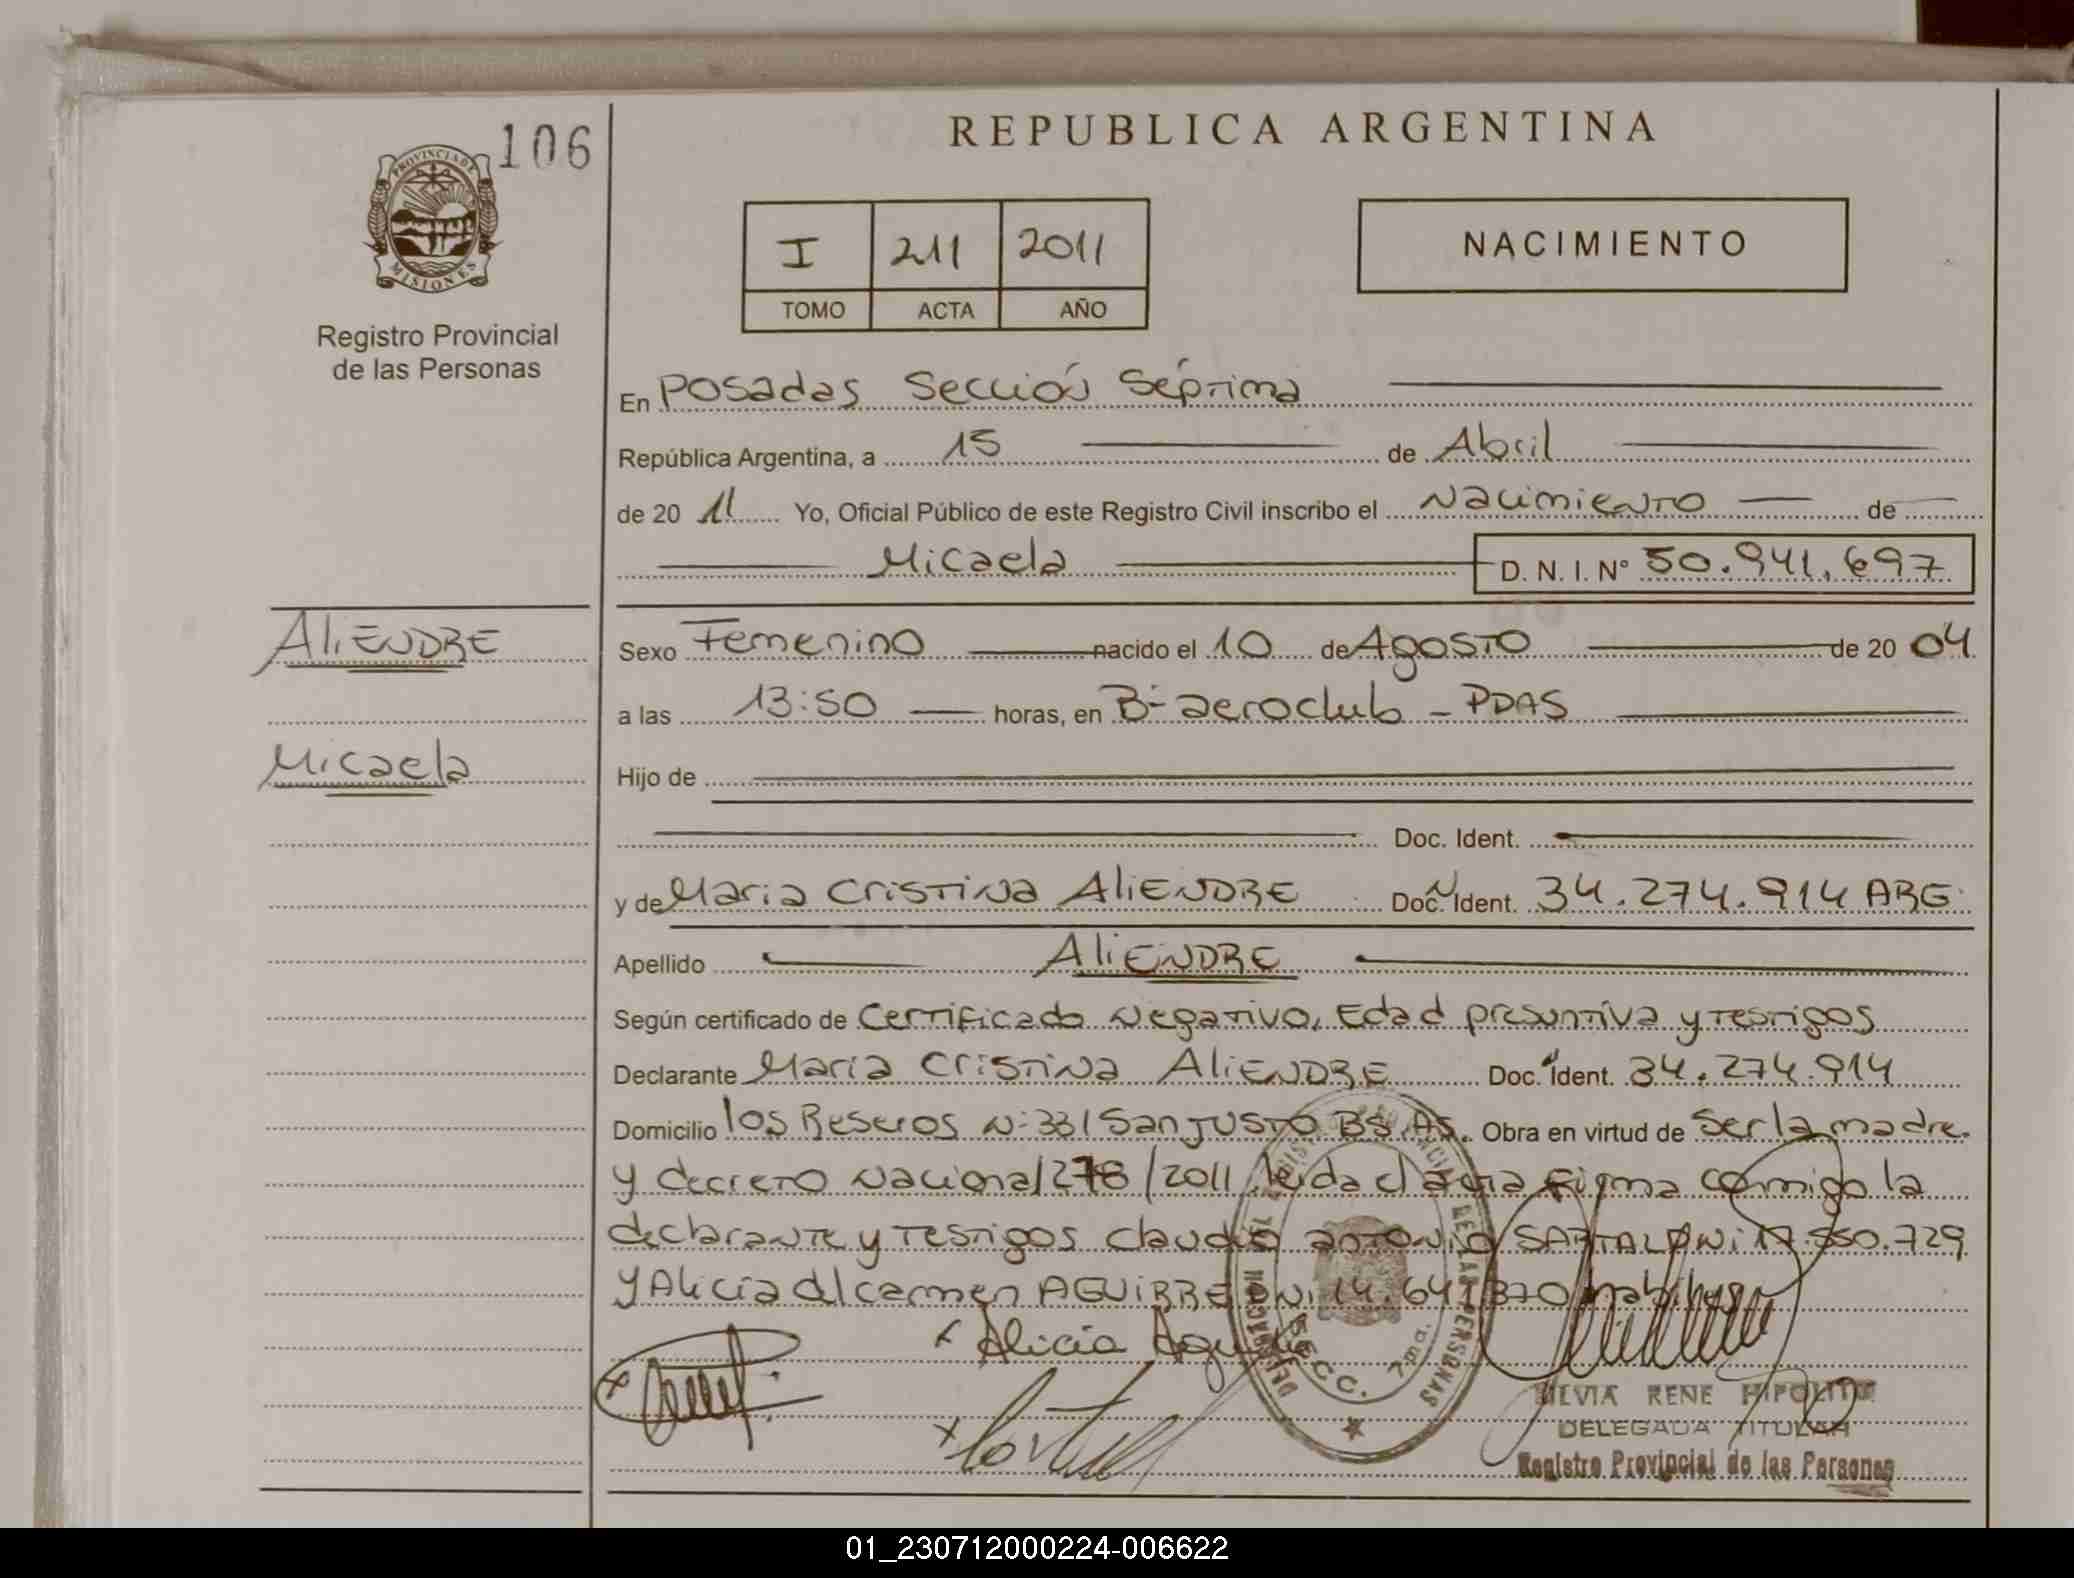 106
PROVINCIA DE
MISIONES
Registro Provincial
de las Personas
REPUBLICA ARGENTINA
I 211 2011
TOMO ACTA AÑO
NACIMIENTO
En Posadas Sección Séptima
República Argentina, a 15 de Abril
de 20 11 Yo, Oficial Público de este Registro Civil inscribo el Nacimiento de
Micaela D. N. I. Nº 50.941.697
ALiENDRE
Micaela
Sexo Femenino nacido el 10 de Agosto de 20 04
a las 13:50 horas, en Bº aeroclub - PDAS
Hijo de
Doc. Ident.
y de Maria Cristina ALiENDRE Doc. N Ident. 34.274.914 ARG.
Apellido ALiENDRE
Según certificado de Certificado Negativo, Edad presuntiva y testigos
Declarante Maria Cristina ALiENDRE Doc. N Ident. 34.274.914
Domicilio los Reseros Nº 331 San Justo BS.AS. Obra en virtud de ser la madre
y decreto Nacional 278/2011 leida el acta firma conmigo la
declarante y testigos claudio antonio DNi 17.550.729
y Alicia del carmen AGUiRRE DNi 14.641.870
x Alicia
x
x
DELEGACION
DE LAS PERSONAS
SECC. 7ma.
SILVIA RENE HIPOLITO
DELEGADA TITULAR
Registro Provincial de las Personas
01_230712000224-006622